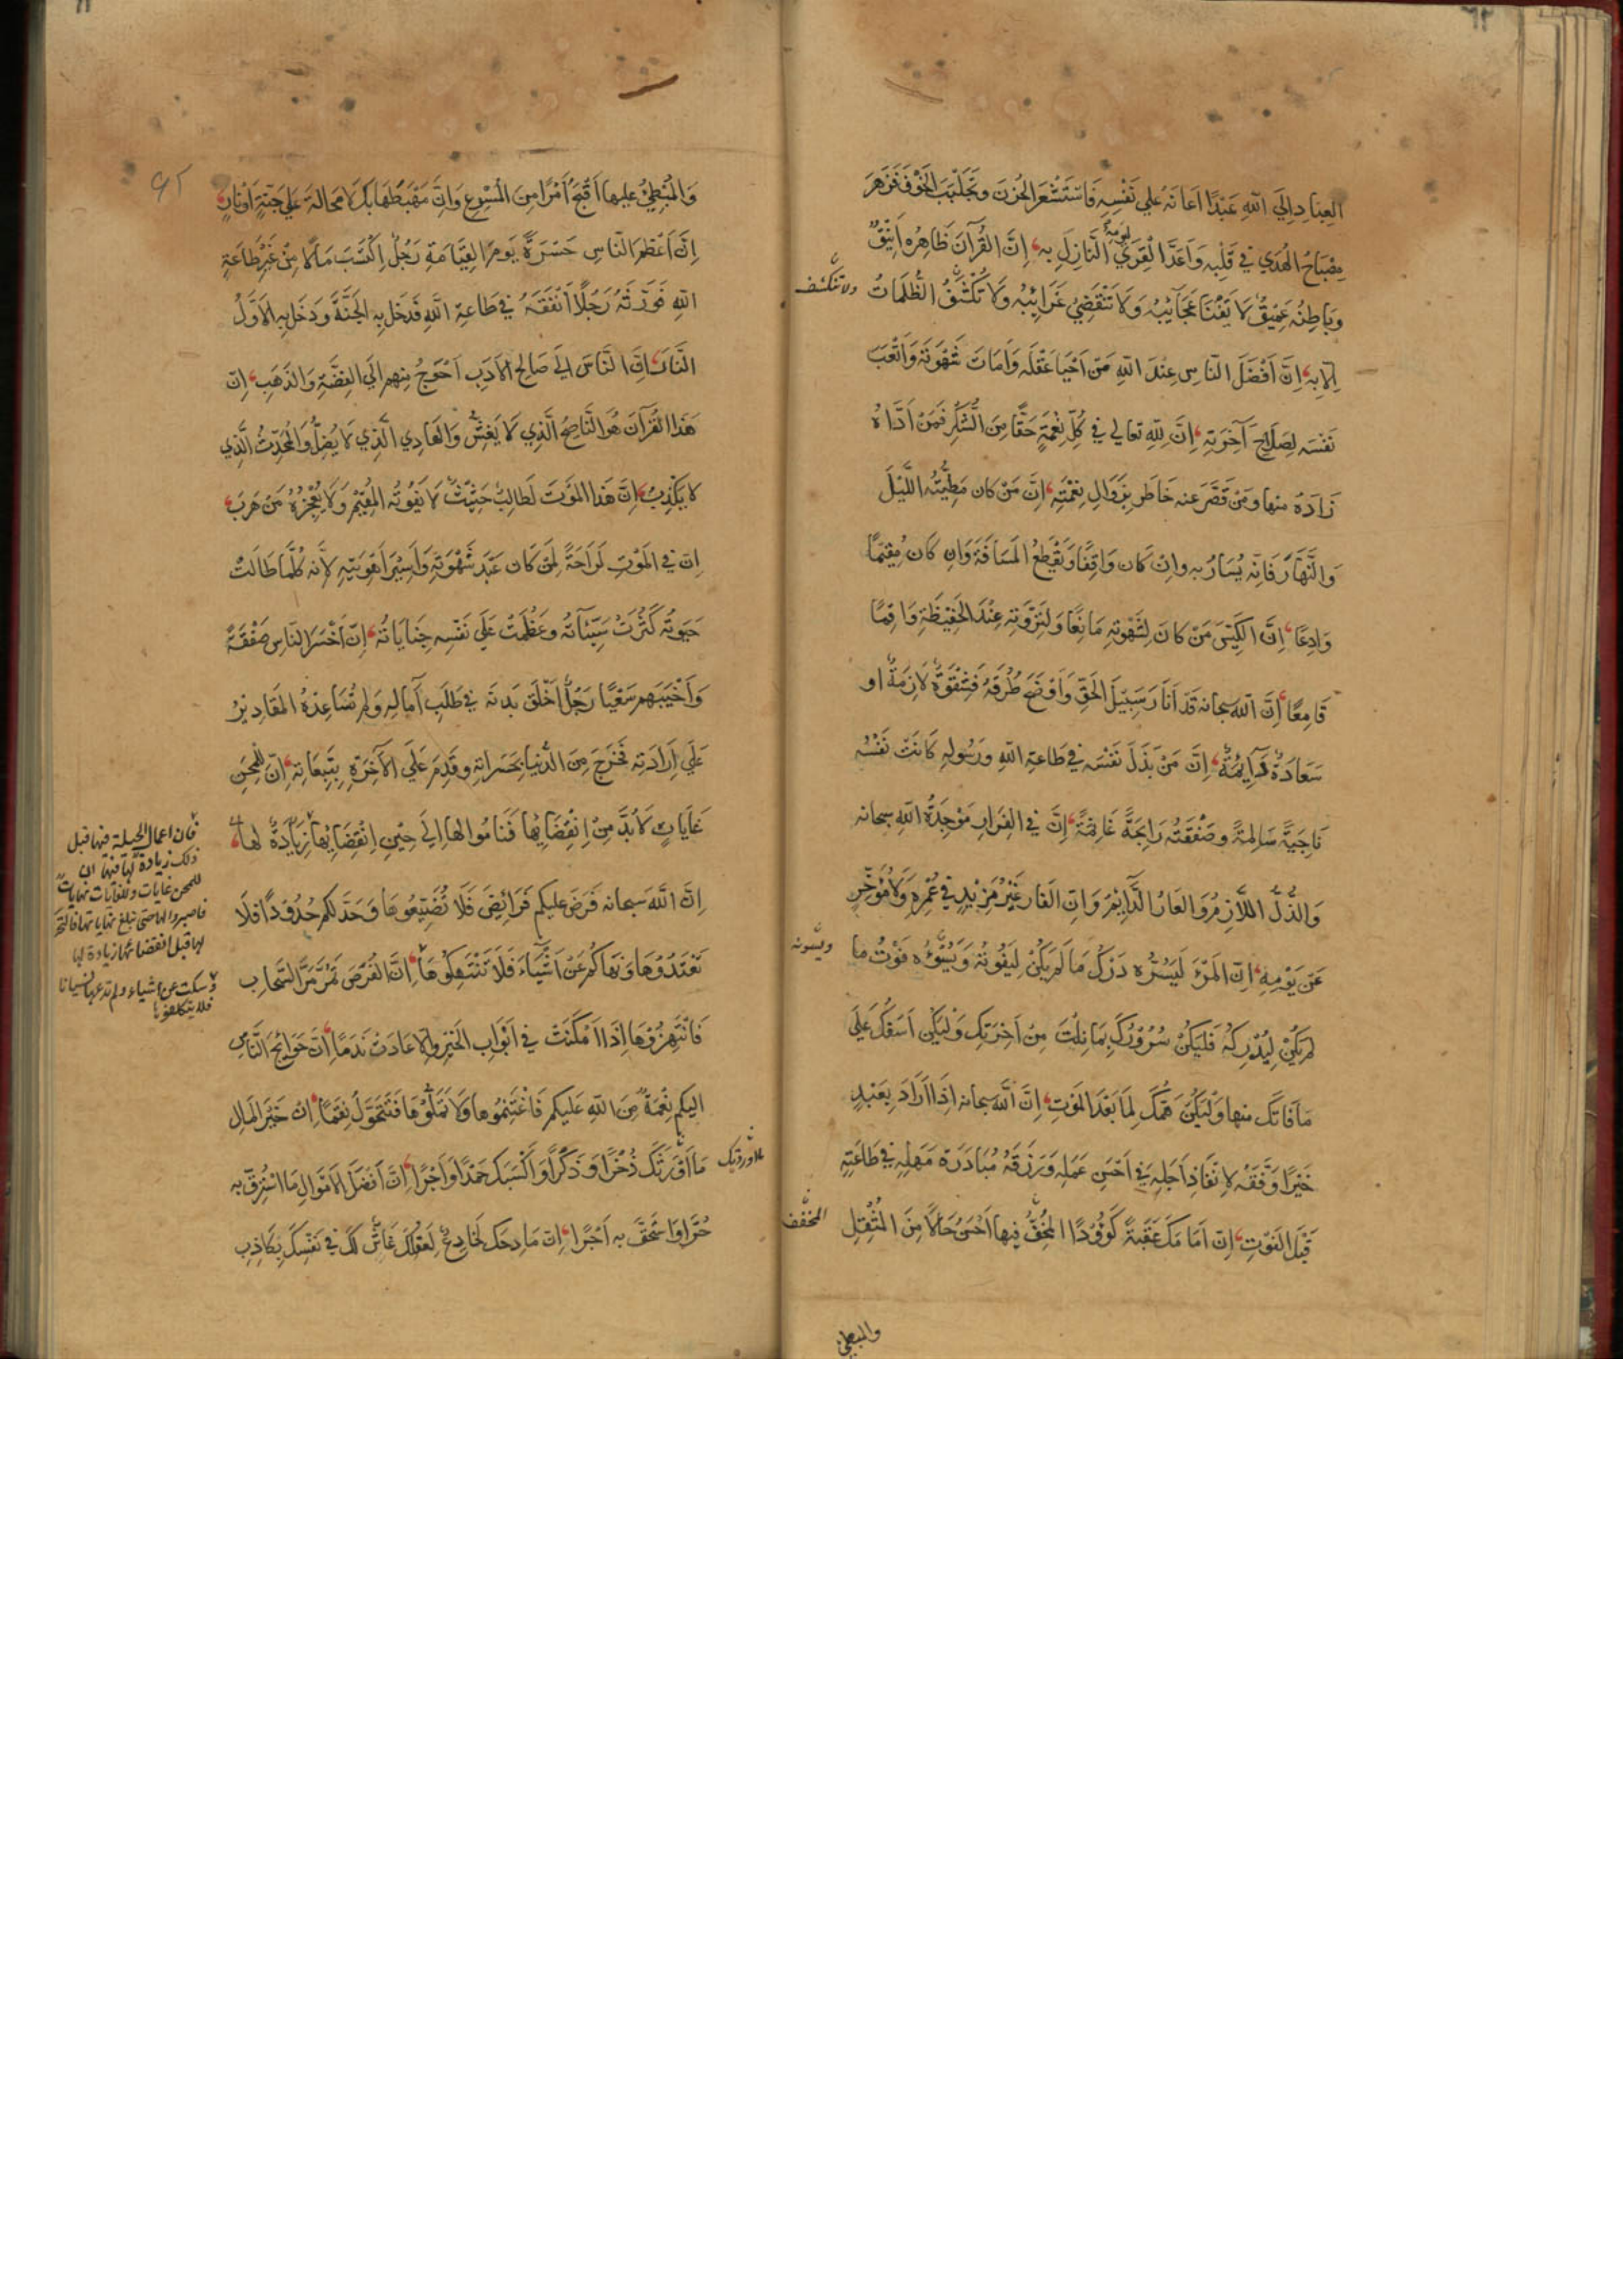 العِبَادِ اِلَي اللّٰهِ عَبْدًا اَعَانَهُ عَلي نَفْسِهِ فَاسْتَشْعَرَ الحُزْنَ وَتَجَلْبَبَ الخَوْفَ فَزَهَرَ
مِصْبَاحُ الهُدَي فِي قَلْبِهِ وَاَعَدَّ الْقِرَي لِيَوْمِهِ النَّازِلِ بِهِ، اِنَّ القُرآنَ ظَاهِرُهُ اَنِيْقٌ
وَبَاطِنُهُ عَمِيْقٌ لَا يَفْنَا عَجَآئِبُهُ وَلَا تَنْقَضِيْ غَرَائِبُهُ وَلَا تُكْشَفُ الظُّلُمَاتُ
ولا تنكشف
اِلَّا بِهِ، اِنَّ اَفْضَلَ النَّاسِ عِنْدَ اللّٰهِ مَنْ اَحْيَا عَقْلَهُ وَاَمَاتَ شَهْوَتَهُ وَاَتْعَبَ
نَفْسَهُ لِصَلَاحِ آخِرَتِهِ، اِنَّ لِلّٰهِ تعالي فِي كُلِّ نِعْمَةٍ حَقًّا مِنَ الشُّكْرِ فَمَنْ اَدَّاهُ
زَادَهُ منها وَمَنْ قَصَّرَ عنه خَاطَرَ بِزَوَالِ نِعْمَتِهِ، اِنَّ مَنْ كان مَطِيَّتُهُ اللَّيْلَ
وَالنَّهَارَ فَاِنَّه يُسَارُ بِهِ وَاِنْ كَان وَاقِفًا وَيَقْطَعُ المَسَافَةَ وَاِن كَانَ مُقِيْمًا
وَادِعًا، اِنَّ الكَيِّسَ مَنْ كَانَ لِشَهْوَتِهِ مَانِعًا وَلِنَزْوَتِهِ عِنْدَ الحَفِيْظَةِ وَاقِمًا
قَامِعًا، اِنَّ اللّٰهَ سبحانه قَدْ اَنَارَ سَبِيْلَ الحَقِّ وَاَوْضَحَ طُرُقَهُ فَشِقْوَةٌ لَازِمَةٌ او
سَعَادَةٌ دَآئِمَةٌ، اِنَّ مَنْ بَذَلَ نَفْسَه فِي طَاعَةِ اللّٰهِ ورَسُولِهِ كَانَتْ نَفْسُه
نَاجِيَةً سَالِمَةً وصَفْقَتُه رَابِحَةً غَانِمَةً، اِنَّ فِي الفِرَارِ مَوْجِدَةَ اللّٰهِ سبحانه
وَالذُّلَّ اللَّازِمَ وَالعَارَ الدَّآئِمَ وَاِنَّ الفَارَّ غَيْرُ مَزِيْدٍ فِي عُمْرِهِ وَلَا مُؤَخَّرٍ
عَنْ يَوْمِهِ، اِنَّ المَرْءَ لَيَسُرُّه دَرْكُ مَا لَمْ يَكُنْ لِيَفُوتَهُ وَيَسُوْءُه فَوْتُ ما
ويسونه
لَمْ يَكُنْ لِيُدْرِكَهُ فَلْيَكُنْ سُرُوْرُكَ بِمَا نِلْتَ مِنْ آخِرَتِكَ وَلْيَكُنْ اَسَفُكَ عَلَي
مَا فَاتَكَ منها وَلْيَكُنْ هَمُّكَ لِمَا بَعْدَ المَوتِ، اِنَّ اللّٰهَ سبحانه اِذَا اَرَادَ بِعَبْدٍ
خَيْرًا وَفَّقَهُ لِانْفَاذِ اَجَلِهِ فِي اَحْسَنِ عَمَلِهِ وَرَزَقَهُ مُبَادَرَةَ مَهَلِهِ فِي طَاعَتِهِ
قَبْلَ الفَوْتِ، اِنَّ اَمَامَكَ عَقَبَةً كَؤُوْدًا المُخِفُّ فِيها اَحْسَنُ حَالًا مِنَ المُثْقِلِ
المخفف
والمبطئ
وَالمُبْطِئُ عليها اَقْبَحُ اَمْرًا مِنَ المُسْرِعِ وَاِنَّ مَهْبَطَهَا بِكَ لَا مَحَالةَ عَلَي جَنَّةٍ اَوْ نَارٍ،
اِنَّ اَعْظَمَ النَّاسِ حَسْرَةً يَومَ القِيَامَةِ رَجُلٌ اِكْتَسَبَ مَالًا مِنْ غَيْرِ طَاعَةِ
اللّٰهِ فَوَرَّثَهُ رَجُلًا اَنْفَقَهُ فِي طَاعَةِ اللّٰهِ فَدَخَلَ بِهِ الجَنَّةَ وَدَخَلَ بِهِ الاَوَّلُ
النَّارَ، اِنَّ النَّاسَ اِلَي صَالِحِ الاَدَبِ اَحْوَجُ مِنهم اِلَي الفِضَّةِ وَالذَهَبِ، اِنّ
هَذَا القُرآنَ هُوَ النَّاصِحُ الَّذِي لَا يَغِشُّ وَالهَادِي الَّذِي لَا يُضِلُّ وَالمُحَدِّثُ الَّذِي
لَا يَكْذِبُ، اِنَّ هَذَا المَوتَ لَطَالِبٌ حَثِيْثٌ لَا يَفُوتُه المُقِيْمُ وَلَا يُعْجِزُهُ مَنْ هَرَبَ،
اِنّ فِي المَوْتِ لَرَاحَةً لِمَنْ كَان عَبْدَ شَهْوَتِهِ وَاَسِيْرَ اَهْوِيَتِهِ لِاَنَّه كُلَّمَا طَالَتْ
حَيوتُه كَثُرَتْ سَيِّئَآتُه وعَظُمَتْ عَلَي نَفْسِهِ جِنَايَاتُهُ، اِنّ اَخْسَرَ النَّاسِ صَفْقَةً
وَاَخْيَبَهم سَعْيًا رَجُلٌ اَخْلَقَ بَدَنَه فِي طَلَبِ آمَالِهِ وَلَمْ تُسَاعِدْهُ المَقَادِيْرُ
عَلَي اِرَادَتِه فَخَرَجَ مِنَ الدُّنيَا بِحَسَرَاتِهِ وقَدِمَ عَلَي الآخِرَةِ بِتَبِعَاتِهِ، اِنّ لِلْمِحَنِ
غَايَاتٍ لَابُدَّ مِنْ اِنْقِضَائِهَا فَنَامُوا لها اِلَي حِيْنِ اِنْقِضَائِهَا زِيَادَةٌ لها،
فان اعمال الحيلة فيها قبل
ذلك زيادة لها فيها ان
للمحن غايات وللغايات نهايات
فاصبروا لها حتى تبلغ نهاياتها فالتحرّ
لها قبل انقضائها زيادة لها
اِنَّ اللّٰهَ سبحانه فَرَضَ عليكم فَرَائِضَ فَلَا تُضَيِّعُوهَا وَحَدَّ لكم حُدُودًا فَلَا
تَعْتَدُوهَا وَنَهَاكُم عَنْ اَشْيَاءَ فَلَا تَنْتَهِكُوهَا، اِنَّ الفُرَصَ تَمُرُّ مَرَّ السَّحَابِ
وسكت عن اشياء ولم يدعها نسيانا
فلا تتكلفوها
فَانْتَهِزُوْهَا اِذَا اَمْكَنَتْ فِي اَبْوَابِ الخَيْرِ وَاِلَّا عَادَتْ نَدَمًا، اِنَّ حَوَائِجَ النَّاسِ
اليكم نِعْمَةٌ مِنَ اللّٰهِ عَليكم فَاغْتَنِمُوها وَلَا تَمَلُّوْهَا فَتَتَحَوَّلَ نِقَمًا، اِنَّ خَيْرَ المَالِ
مَا اَوْرَثَكَ ذُخْرًا وَذِكْرًا وَاَكْسَبَكَ حَمْدًا وَاَجْرًا، اِنَّ اَفْضَلَ الاَمْوَالِ مَا اسْتُرِقَّ بِهِ
حُرًّا وَاسْتُحِقَّ بِهِ اَجْرًا، اِنّ مَادِحَكَ لَخَادِعٌ لِعَقْلِكَ غَاشٌّ لَكَ فِي نَفْسِكَ بِكَاذِبِ